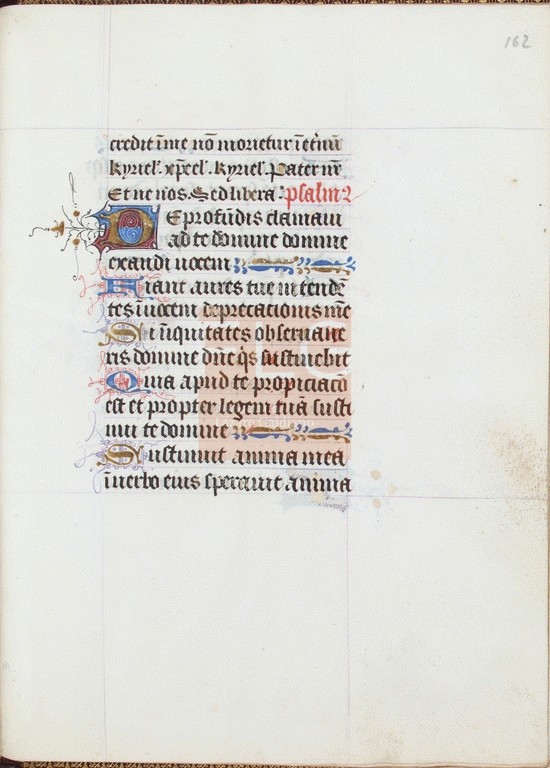 162
credit ī me nō morietur ī et̄nū
kyriel'. xp̄eel'. kyriel'. Pater nr̄
Et ne nos. Sed libera. psalm9
De profūdis clamaui
ad te domine domine
exaudi uocem
Fiant aures tue intendē
tes ī uocem deprecationis mee
Si īiquitates obseruaue
ris domine dn̄e q̄s sustinebit
Quia apud te propiciacō
est et propter legem tuā susti
nui te domine
Sustinuit anima mea
ī uerbo eius sperauit anima